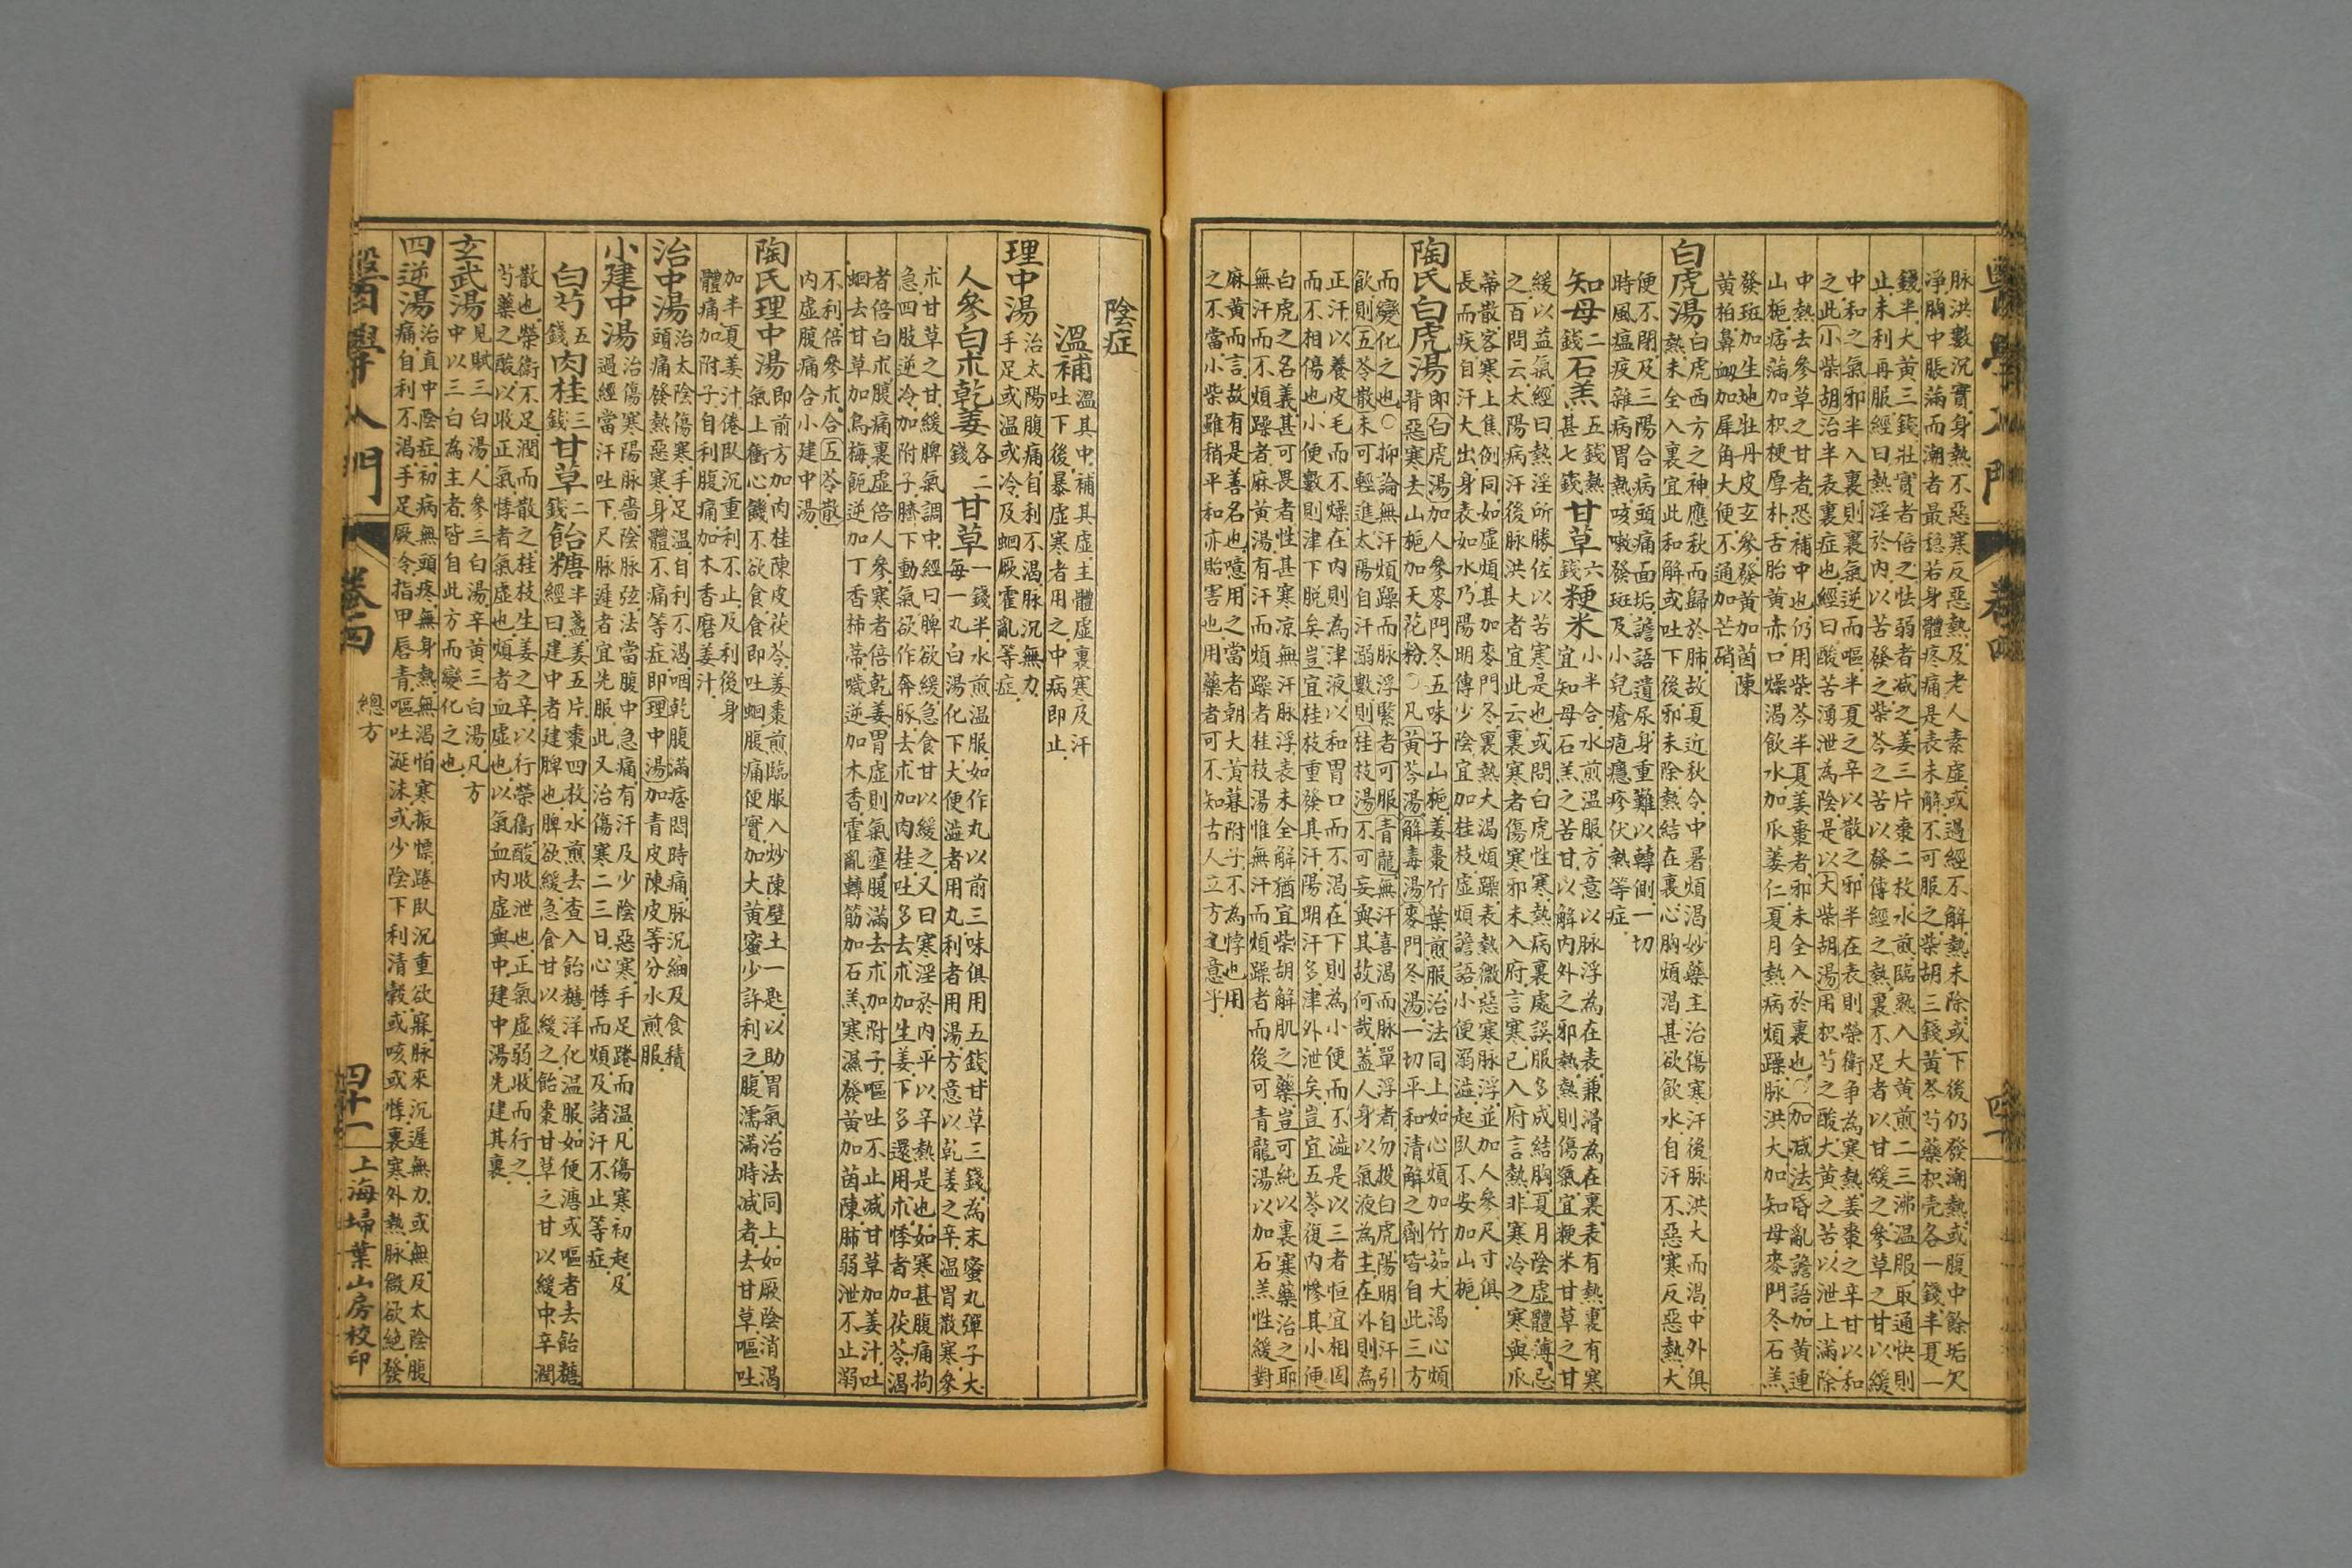 醫學入門
卷四
脉洪數沉實身熱不惡寒反惡熱及老人素虛或過經不解熱未除或下後仍發潮熱或腹中餘垢欠
淨胸中脹滿而潮者最穩若身體疼痛是表未解不可服之柴胡三錢黃芩芍藥枳壳各一錢半夏一
錢半大黃三錢壯實者倍之怯弱者减之姜三片棗二枚水煎臨熟入大黃煎二三沸溫服取通快則
止未利再服經曰熱淫於內以苦發之柴芩之苦以發傳經之熱裏不足者以甘緩之參草之甘以緩
中和之氣邪半入裏則裏氣逆而嘔半夏之辛以散之邪半在表則榮衛爭為寒熱姜棗之辛甘以和
之此小柴胡治半表裏症也經曰酸苦湧泄為陰是以大柴胡湯用枳芍之酸大黃之苦以泄上滿除
中熱去參草之甘者恐補中也仍用柴芩半夏姜棗者邪未全入於裏也○加减法昏亂譫語加黃連
山梔痞滿加枳梗厚朴舌胎黃赤口燥渴飲水加瓜蔞仁夏月熱病煩躁脉洪大加知母麥門冬石羔
發斑加生地牡丹皮玄參發黃加茵陳
黃柏鼻衂加犀角大便不通加芒硝
白虎湯
白虎西方之神應秋而歸於肺故夏近秋令中暑煩渴妙藥主治傷寒汗後脉洪大而渴中外俱
熱未全入裏宜此和解或吐下後邪未除熱結在裏心胸煩渴甚欲飲水自汗不惡寒反惡熱大
便不閉及三陽合病頭痛面垢譫語遺尿身重難以轉側一切
時風瘟疫雜病胃熱咳嗽發斑及小兒瘡疱癮疹伏熱等症
知母二錢石羔五錢熱甚七錢甘草六錢粳米
小半合水煎溫服方意以脉浮為在表兼滑為在裏表有熱裏有寒
宜知母石羔之苦甘以解內外之邪熱熱則傷氣宜粳米甘草之甘
緩以益氣經曰熱淫所勝佐以苦寒是也或問白虎性寒熱病裏處誤服多成結胸夏月陰虛體薄忌
之百問云太陽病汗後脉洪大者宜此云裏寒者傷寒邪未入府言寒已入府言熱非寒冷之寒與瓜
蒂散客寒上焦例同如虛煩甚加麥門冬裏熱大渴煩躁表熱微惡寒脉浮並加人參尺寸俱
長而疾自汗大出身表如水乃陽明傳少陰宜加桂枝虛煩譫語小便溺澁起臥不安加山梔
陶氏白虎湯
即白虎湯加人參麥門冬五味子山梔姜棗竹葉煎服治法同上如心煩加竹茹大渴心煩
背惡寒去山梔加天花粉○凡黃芩湯解毒湯麥門冬湯一切平和清解之劑皆自此三方
而變化之也○抑論無汗煩躁而脉浮緊者可服青龍無汗喜渴而脉單浮者勿投白虎陽明自汗引
飲則五苓散未可輕進太陽自汗溺數則桂枝湯不可妄與其故何哉蓋人身以氣液為主在外則為
正汗以養皮毛而不燥在內則為津液以和胃口而不渴在下則為小便而不澁是以三者恒宜相固
而不相傷也小便數則津下脫矣豈宜桂枝重發其汗陽明汗多津外泄矣豈宜五苓復內慘其小便
白虎之名義甚可畏者性甚寒凉無汗脉浮表未全解猶宜柴胡解肌之藥豈可純以裏寒藥治之耶
無汗而不煩躁者麻黃湯有汗而煩躁者桂枝湯惟無汗而煩躁者而後可青龍湯以加石羔性緩對
麻黃而言故有是善名也噫用之當者朝大黃暮附子不為悖也用
之不當小柴雖稍平和亦貽害也用藥者可不知古人立方之意乎
陰症
溫補
溫其中補其虛主體虛裏寒及汗
吐下後暴虛寒者用之中病即止
理中湯
治太陽腹痛自利不渴脉沉無力
手足或溫或冷及蛔厥霍亂等症
人參白朮乾姜各二錢甘草
一錢半水煎溫服如作丸以前三味俱用五錢甘草三錢為末蜜丸彈子大
每一丸白湯化下大便澁者用丸利者用湯方意以乾姜之辛溫胃散寒參
朮甘草之甘緩脾氣調中經曰脾欲緩急食甘以緩之又曰寒淫於內平以辛熱是也如寒甚腹痛拘
急四肢逆冷加附子臍下動氣欲作奔豚去朮加肉桂吐多去朮加生姜下多還用朮悸者加茯苓渴
者倍白朮腹痛裏虛倍人參寒者倍乾姜胃虛則氣壅腹滿去朮加附子嘔吐不止减甘草加姜汁吐
蛔去甘草加烏梅飽逆加丁香柿蒂噦逆加木香霍亂轉筋加石羔寒濕發黃加茵陳肺弱泄不止溺
不利倍參朮合五苓散
內虛腹痛合小建中湯
陶氏理中湯
即前方加肉桂陳皮茯苓姜棗煎臨服入炒陳壁土一匙以助胃氣治法同上如厥陰消渴
氣上衝心饑不欲食食即吐蛔腹痛便實加大黃蜜少許利之腹濡滿時减者去甘草嘔吐
加半夏姜汁倦臥沉重利不止及利後身
體痛加附子自利腹痛加木香磨姜汁
治中湯
治太陰傷寒手足溫自利不渴咽乾腹滿痞悶時痛脉沉細及食積
頭痛發熱惡寒身體不痛等症即理中湯加青皮陳皮等分水煎服
小建中湯
治傷寒陽脉嗇陰脉弦法當腹中急痛有汗及少陰惡寒手足踡而溫凡傷寒初起及
過經當汗吐下尺脉遲者宜先服此又治傷寒二三日心悸而煩及諸汗不止等症
白芍五錢肉桂三錢甘草二錢飴糖
半盞姜五片棗四枚水煎去查入飴糖洋化溫服如便溏或嘔者去飴糖
經曰建中者建脾也脾欲緩急食甘以緩之飴棗甘草之甘以緩中辛潤
散也榮衛不足潤而散之桂枝生姜之辛以行榮衛酸收泄也正氣虛弱收而行之
芍藥之酸以收正氣悸者氣虛也煩者血虛也以氣血內虛與中建中湯先建其裏
玄武湯
見賦三白湯人參三白湯辛黃三白湯凡方
中以三白為主者皆自此方而變化之也
四逆湯
治直中陰症初病無頭疼無身熱無渴怕寒振慄踡臥沉重欲寐脉來沉遲無力或無及太陰腹
痛自利不渴手足厥冷指甲唇青嘔吐涎沫或少陰下利清穀或咳或悸裏寒外熱脉微欲絕發
醫學入門
卷四
總方
四十一
上海埽葉山房校印